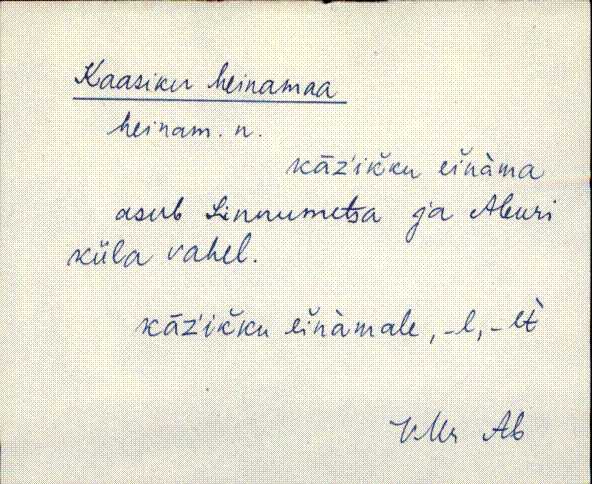 Kaasiku heinamaa
heinam. n.
kāz'ik̆ku eĭnàma
asub Linnumetsa ja Aburi
küla vahel.
kāz'ik̆ku eĭnàmale, -l, -lt̀
VMr Ab